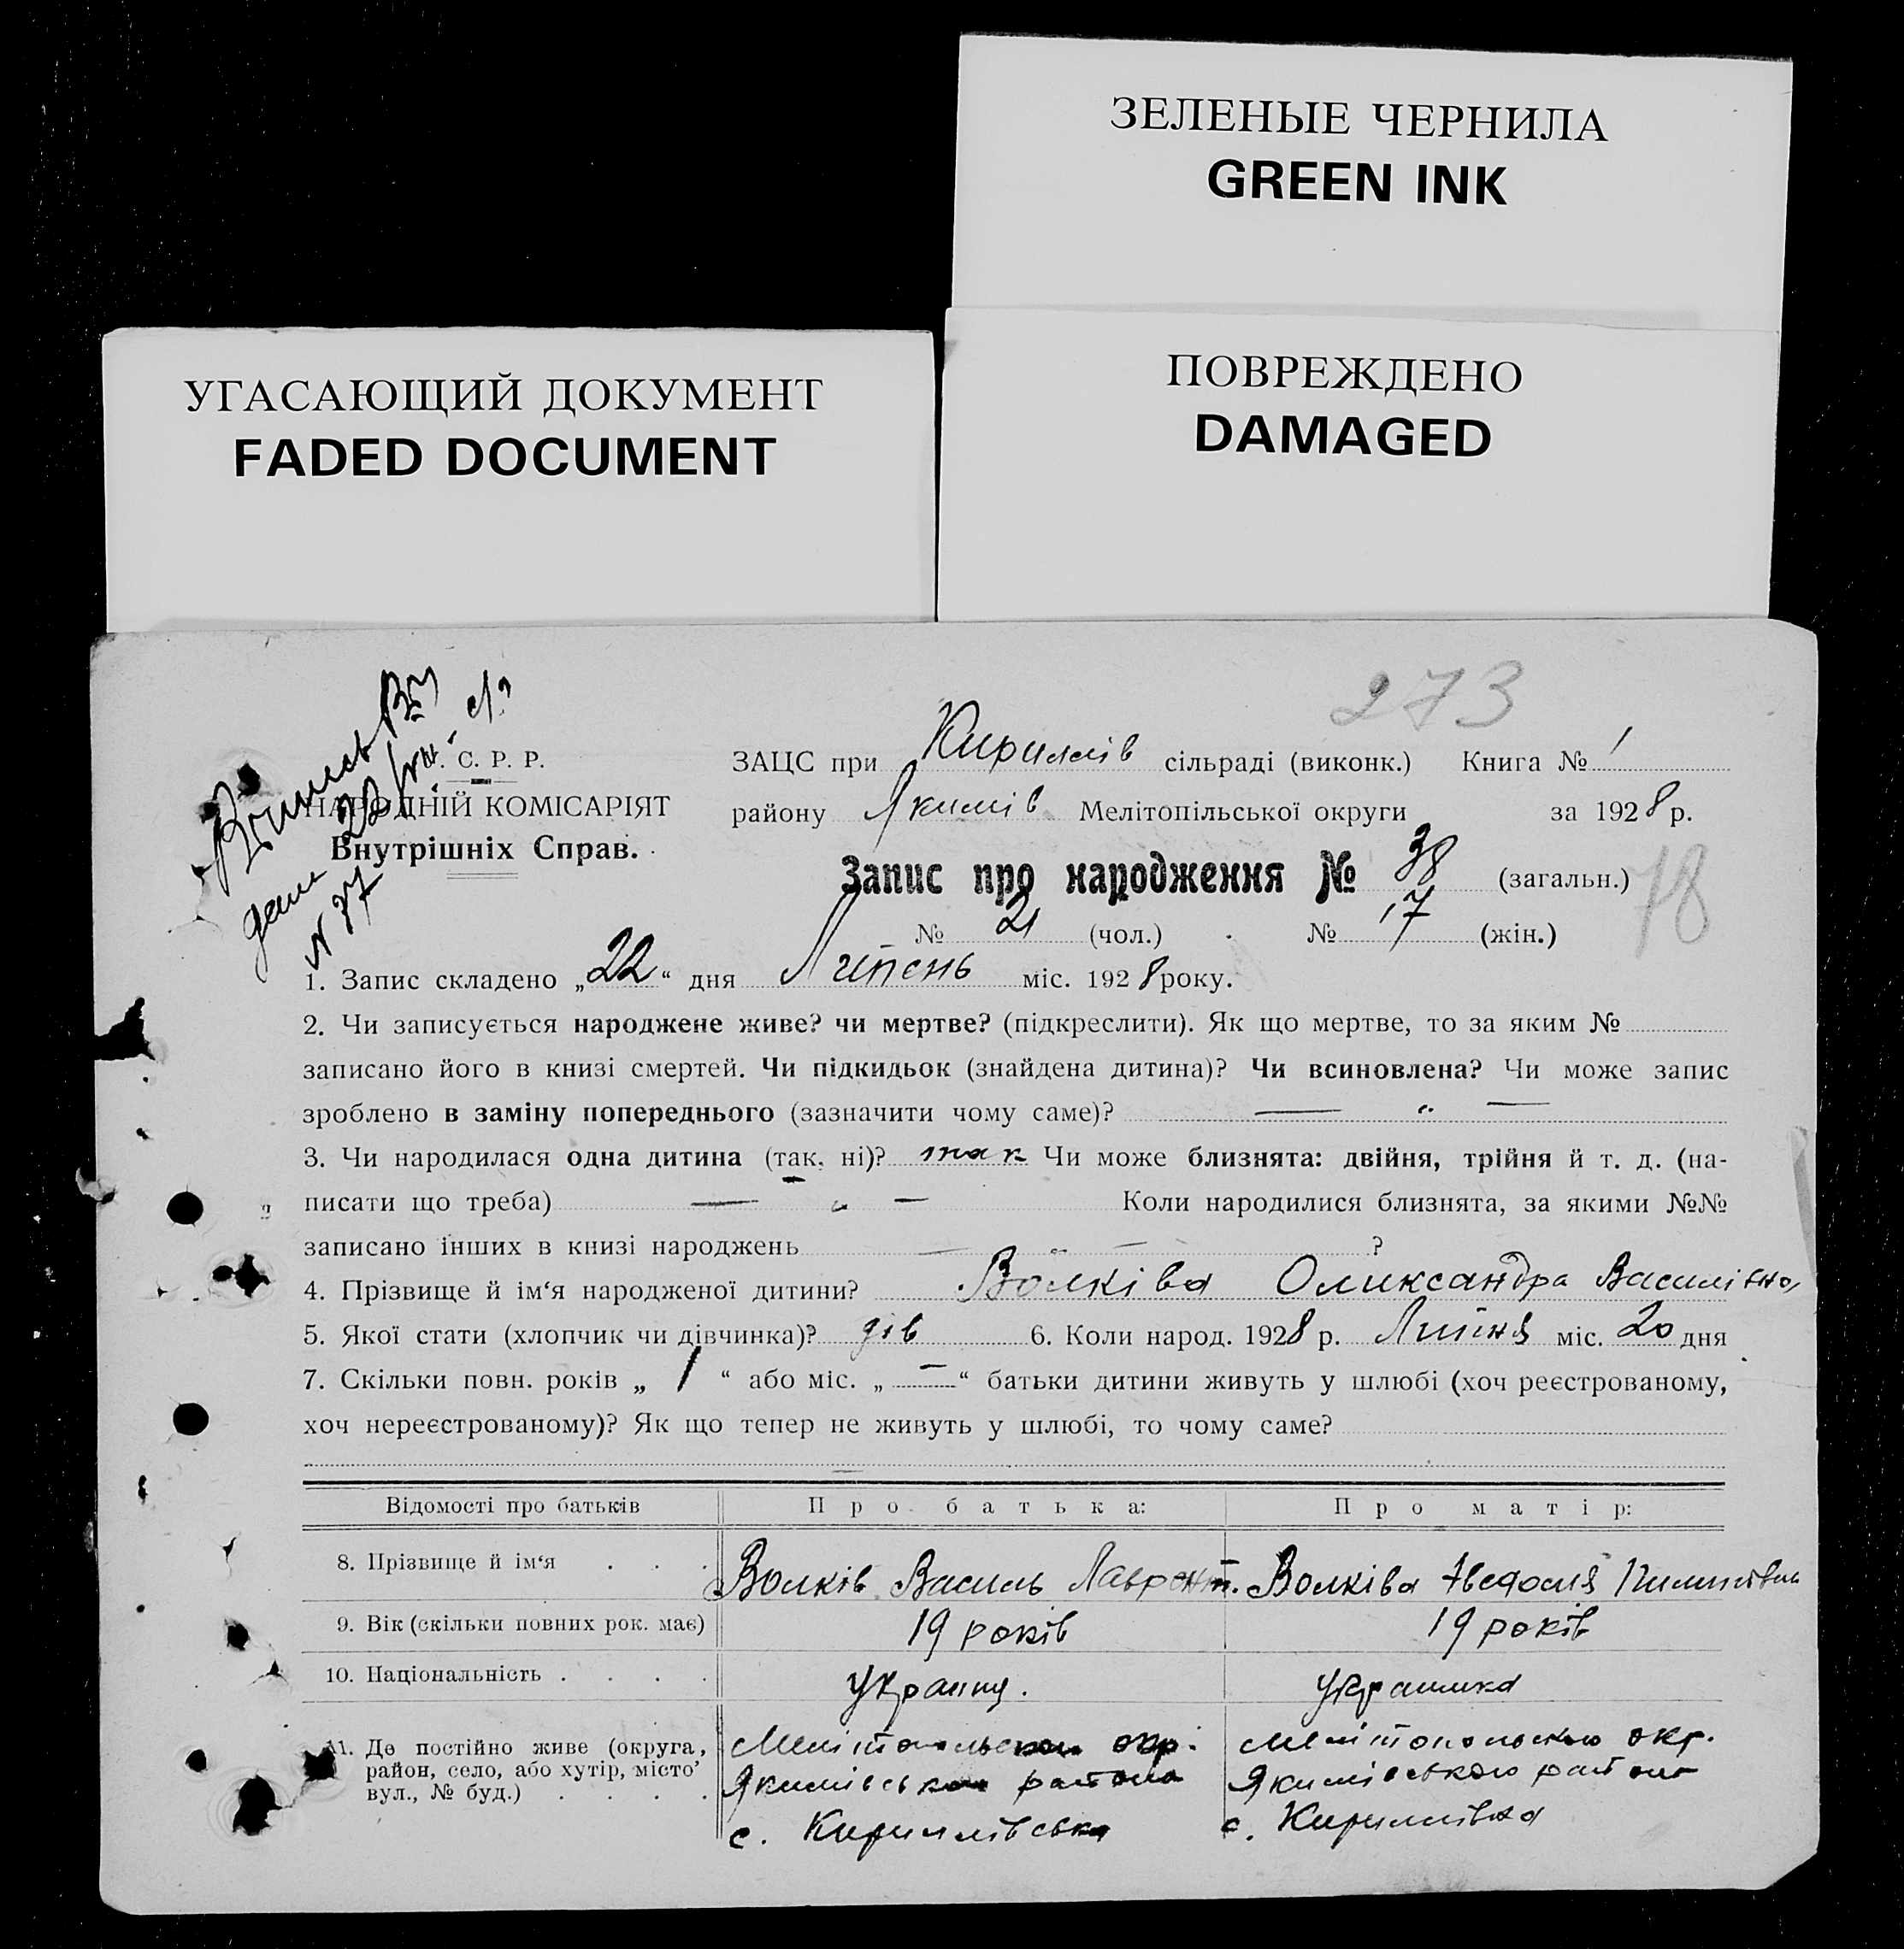 ЗЕЛЕНЫЕ ЧЕРНИЛА
GREEN INK
УГАСАЮЩИЙ ДОКУМЕНТ
FADED DOCUMENT
ПОВРЕЖДЕНО
DAMAGED
273
С. Р. Р.
НАРОДНІЙ КОМІСАРІЯТ
Внутрішніх Справ.
22
N 37
ЗАЦС при Кирилів сільраді (виконк.) Книга № 1
району Якимів Мелітопільської округи за 1928 р.
Запис про народження № 38 (загальн.) 78
№ 21 (чол.) № 17 (жін.)
1. Запис складено „22“ дня Липень міс. 1928 року.
2. Чи записується народжене живе? чи мертве? (підкреслити). Як що мертве, то за яким №
записано його в книзі смертей. Чи підкидьок (знайдена дитина)? Чи всиновлена? Чи може запис
зроблено в заміну попереднього (зазначити чому саме)? — „ —
3. Чи народилася одна дитина (так, ні)? так Чи може близнята: двійня, трійня й т. д. (на-
писати що треба) — „ — Коли народилися близнята, за якими №№
записано інших в книзі народжень — „ — ?
4. Прізвище й ім‘я народженої дитини? Волківа Олександра Василівна
5. Якої стати (хлопчик чи дівчинка)? дів 6. Коли народ. 1928 р. Липня міс. 20 дня
7. Скільки повн. років „ 1 “ або міс. „ — “ батьки дитини живуть у шлюбі (хоч реєстрованому,
хоч нереєстрованому)? Як що тепер не живуть у шлюбі, то чому саме?
—
Відомості про батьків Про батька: Про матір:
8. Прізвище й ім‘я . . . Волків Василь Лаврент. Волківа Авдосія
9. Вік (скільки повних рок. має) 19 років 19 років
10. Національність . . . . Украінц. Украинка
11. Де постійно живе (округа, район, село, або хутір, місто’ вул., № буд.) . . . .
Мелітопольськои окр. Мелітопольською окр.
Якимівськои района Якимівського района
с. Кириллівська с. Кирилівка